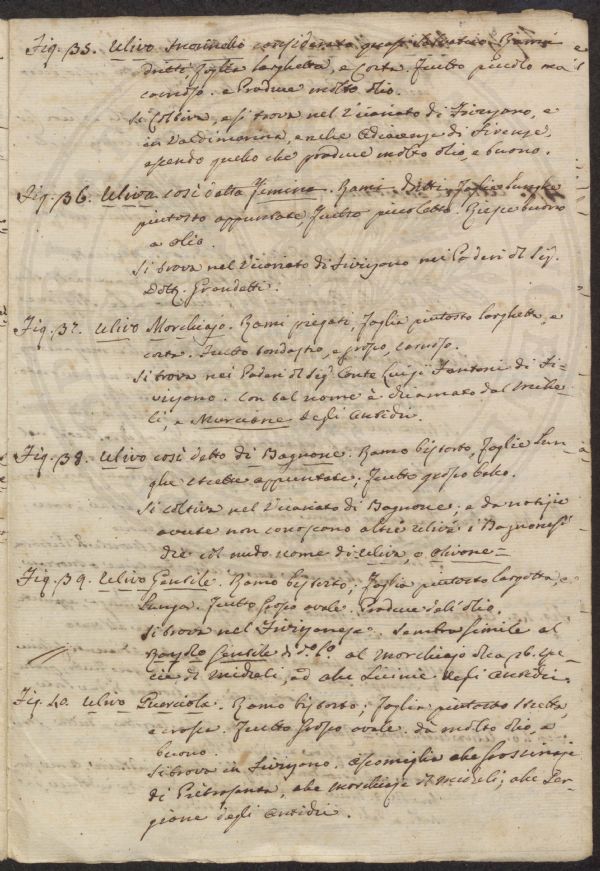 Fig. 35. Ulivo considerato quasi Salvatico. Rami
dritti, foglia larghetta, e corta. Frutto piccolo ma
carnoso. e Produce molto olio.
Si Coltiva, e si trova nel Vicariato di Fivizzano, e
in Valdimarina, anche adiacenze di Firenze,
essendo quello che produce molto olio, e buono.
Fig. 36. Uliva così detta Rami dritti, Foglie lunghe
piutosto appuntate, Frutto piccoletto. buono
a olio.
Si trova nel Vicariato di Fivizzano nei Poderi del Sig.
Dott. Grandetti.
Fig. 37. Ulivo Morchiajo. Rami piegati, Foglia piutosto larghetta, e
corta. Frutto tondastro, e grosso, carnoso.
Si trova nei Poderi del Sig. Conte Luigi Fantoni di Fi-
vizzano. Con tal nome è chiamato dal Miche-
li, e degli Antichi.
Fig. 38. Ulivo così detto di Bagnone. Ramo bistorto, Foglie lun-
ghe strette appuntate; Frutto grosso
Si coltiva nel Vicariato di Bagnone; e da notizie
avute non conoscono altri ulivi i Bagnonesi
che col nudo nome di Uliva, o Olivone
Fig. 39. Ulivo Gentile. Ramo bistorto; Foglia piutosto larghetta, e
lunga. Frutto grosso ovale. Produce olio.
Si trova nel Fivizzanese. Sembra simile al
Gentile di al Morchiajo
cie di Micheli, ed alle Licinie degli Antichi.
Fig. 40. Ulivo Querciola. Ramo bistorto; Foglia piutosto stretta,
e grossa. Frutto grosso ovale. dà molto olio, e
buono.
Si trova in Fivizzano. assomiglia alle
di Pietrasanta, alle Morchiaje del Micheli; alle Ser-
gione degli Antichi.